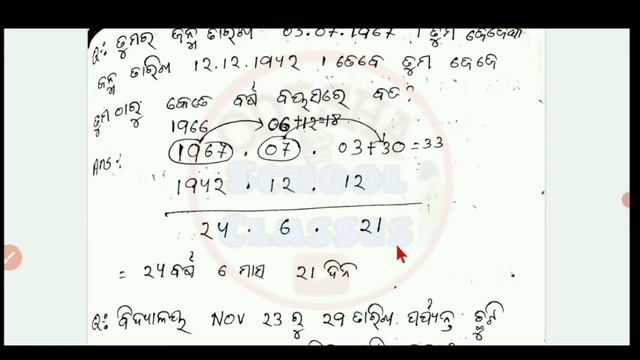 Q: ତୁମର ଜନ୍ମ ତାରିଖ 03.07.1967 । ତୁମ
ଜନ୍ମ ତାରିଖ 12.12.1942 । ତେବେ ତୁମ ଜେଜେ
ତୁମ ଠାରୁ କେତେ ବର୍ଷ ବୟସରେ ବଡ?
1966 06+12=18
Ans: 1967 . 07 . 03+30=33
1942 . 12 . 12
24 . 6 . 21
= 24 ବର୍ଷ 6 ମାସ 21 ଦିନ
Q: ବିଦ୍ୟାଳୟ NOV 23 ରୁ 29 ତାରିଖ ପର୍ଯ୍ୟନ୍ତ ଛୁଟି
SCHOOL
CLASSES